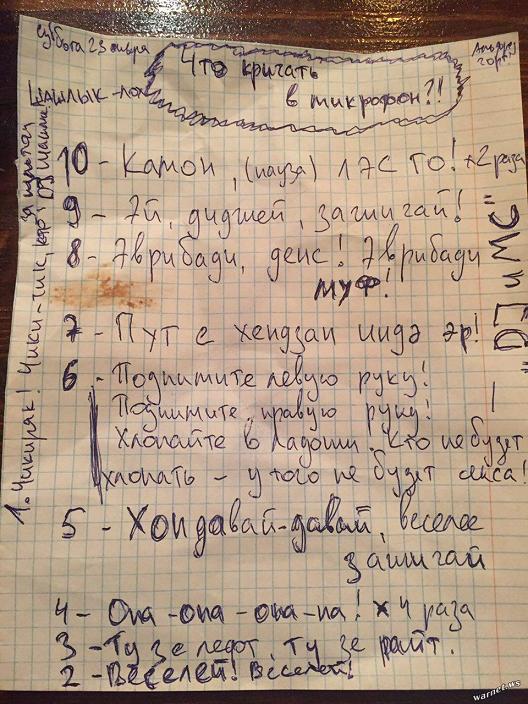 Суббота 23 января
Альберт
гор!!
Что кричать
в микрофон?!
Шашлык-поп
10 - Камон, (пауза) лэс го! x2 раза
9 - Эй, диджей, зажигай!
8 - Эврибади, денс! Эврибади
муф!
7 - Пут ё хендзап индэ эр!
6 - Поднимите левую руку!
Поднимите правую руку!
Хлопайте в ладоши! Кто не будет
хлопать - у того не будет секса!
5 - Хоп давай-давай, веселее
зажигай
4 - Опа-опа-опа-па! x 4 раза
3 - Ту зе лефт, ту зе райт.
2 - Веселей! Веселей!
1. Чикиряк! Чики-чик,
за пультом
DJ Маша!
— "DJ и МС"
warnet.ws